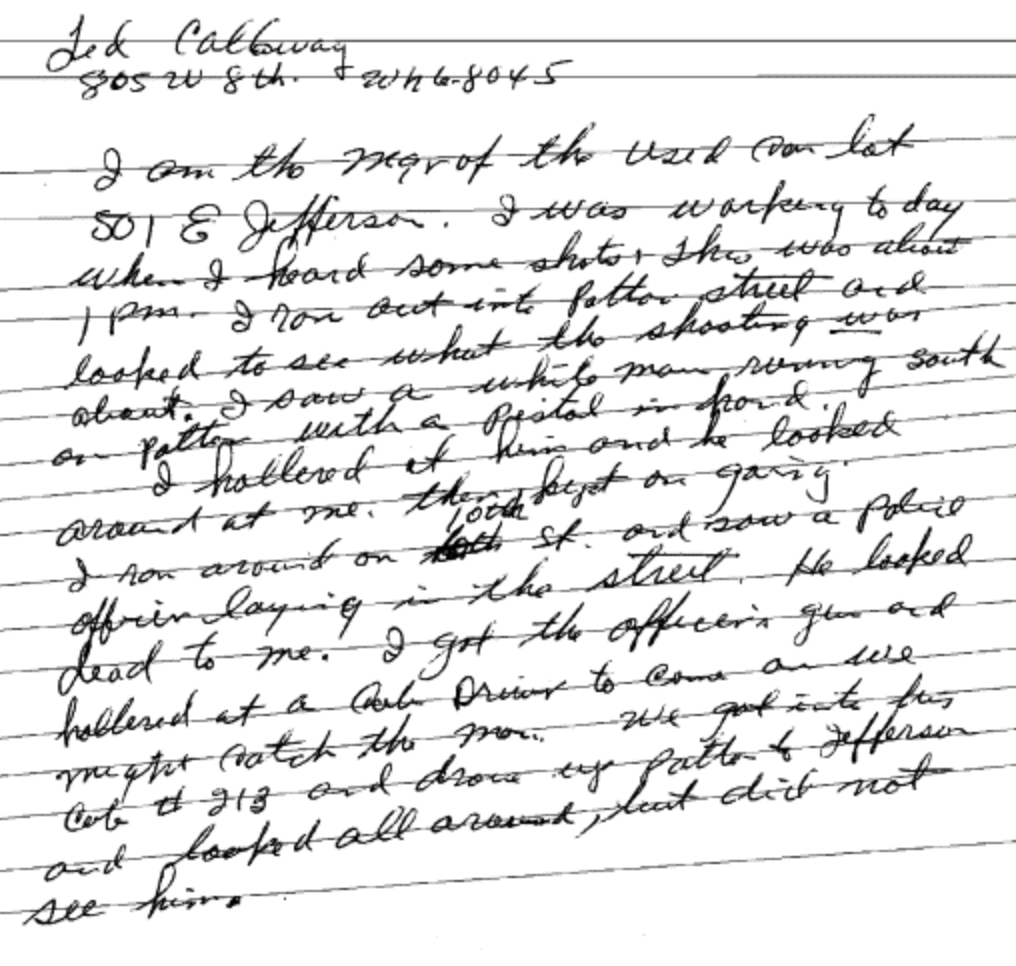 Ted Calloway
805 W 8th. Wh 6-8045
I am the Mgr of the Used car lot
501 E Jefferson. I was working to day
when I heard some shots, This was about
1 pm. I ran out into Patton street and
looked to see what the shooting was
about. I saw a white man running south
on Patton with a Pistol in hand.
I hollered at him and he looked
around at me. then kept on going.
I ran around on 10th St. and saw a Police
officer laying in the street. He looked
dead to me. I got the officer's gun and
hollered at a Cab Driver to come on we
might catch the man. We got into his
Cab # 213 and drove up Patton to Jefferson
and looked all around, but did not
see him.